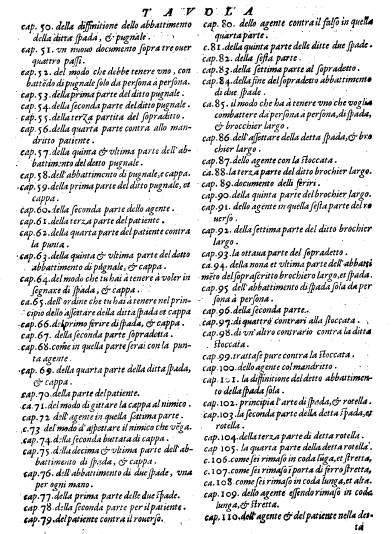 TAVOLA
cap. 50. della diffinitione dello abbattimento
della ditta spada, & pugnale.
cap. 51. vn nuouo documento sopra tre ouer
quattro passi.
cap. 52. del modo che debbe tenere vno, con
battēdo di pugnale solo da persona a persona.
cap. 53. della prima parte del ditto pugnale.
cap. 54. della seconda parte del ditto pugnale.
cap. 55. della terza partita del sopraditto.
cap. 56. della quarta parte contra allo man-
drutto patiente.
cap. 57. della quinta & vltima parte dell'ab-
battimento del detto pugnale.
cap. 58. dell'abbattimento di pugnale, e cappa.
cap. 59. della prima parte del ditto pugnale, et
cappa.
cap. 60. della seconda parte dello agente.
cap. 61. della terza parte del patiente.
cap. 62. della quarta parte del patiente contra
la punta.
cap. 63. della quinta & vltima parte del detto
abbattimento di pugnale, & cappa.
cap. 64. del modo che tu hai à tenere à voler in
segnare di spada, & cappa.
ca. 65. dell'ordine che tu hai à tenere nel prin-
cipio dello assettare della ditta spada et cappa
cap. 66. di primo ferire di spada, & cappa.
cap. 67. della seconda parte sopradetta.
cap. 68. come in quella parte serai con la pun-
ta agente.
cap. 69. della quarta parte della ditta spada,
& cappa.
cap. 70. della parte del patiente.
ca. 71. del modo di gittare la cappa al nimico.
cap. 72. dell'agente in questa settima parte.
c. 73 del modo d'aspettare il nimico che vēga.
cap. 74 della seconda buttata di cappa.
cap. 75. della decima & vltima parte dell'ab-
battimento di spada, & cappa.
cap. 76. dell'abbattimento di due spade, vna
per ogni mano.
cap. 77. della prima parte delle due spade.
cap. 78. della seconda parte per il patiente.
cap. 79. del patiente contra il rouerso.
cap. 80. dello agente contra il falso in questa
quarta parte.
c. 81. della quinta parte delle ditte due spade.
cap. 82. della sesta parte.
cap. 83. della settima parte al sopradetto.
cap. 84. della fine del sopradetto abbattimento
di due spade.
ca. 85. il modo che ha à tenere vno che voglia
combattere da persona à persona, di spada,
& brocchier largo.
cap. 86. dell'assettare della detta spada, & bro
chier largo.
cap. 87. dello agente con la stoccata.
ca. 88. la terza parte del ditto brochier largo.
cap. 89. documento delli feriri.
cap. 90. della quinta parte del brochier largo.
cap. 91. dello agente in questa sesta parte del ro
uerso.
cap. 92. della settima parte del ditto brochier
largo.
cap. 93. la ottaua parte del sopradetto.
ca. 94. della nona et vltima parte dell'abbati
mēto del soprascritto brochiero largo, et spada.
cap. 95 dell'abbattimento di spada sola da per
sona à persona.
cap. 96. della seconda parte.
cap. 97. di quattro contrari alla stoccata.
cap. 98. d'vn'altro contrario contra la ditta
stoccata.
cap. 99. trattase pure contra la stoccata.
cap. 100. dello agente col mandritto.
cap. 101. la diffinitione del detto abbattimen-
to della spada sola.
cap. 102. principia l'arte di spada, & rotella.
cap. 103. la seconda parte della detta spada, et
rotella.
cap. 104. della terza parte di detta rotella.
cap. 105. la quarta parte della detta rotella.
c. 106. come sei rimaso in coda lūga, et stretta.
c. 107. come sei rimaso ī porta di ferro stretta,
ca. 108. come sei rimaso in coda lunga, et alta.
cap. 109. dello agente essendo rimaso in coda
lunga, & stretta.
cap. 110. dell'agente & del patiente nella det-
ta